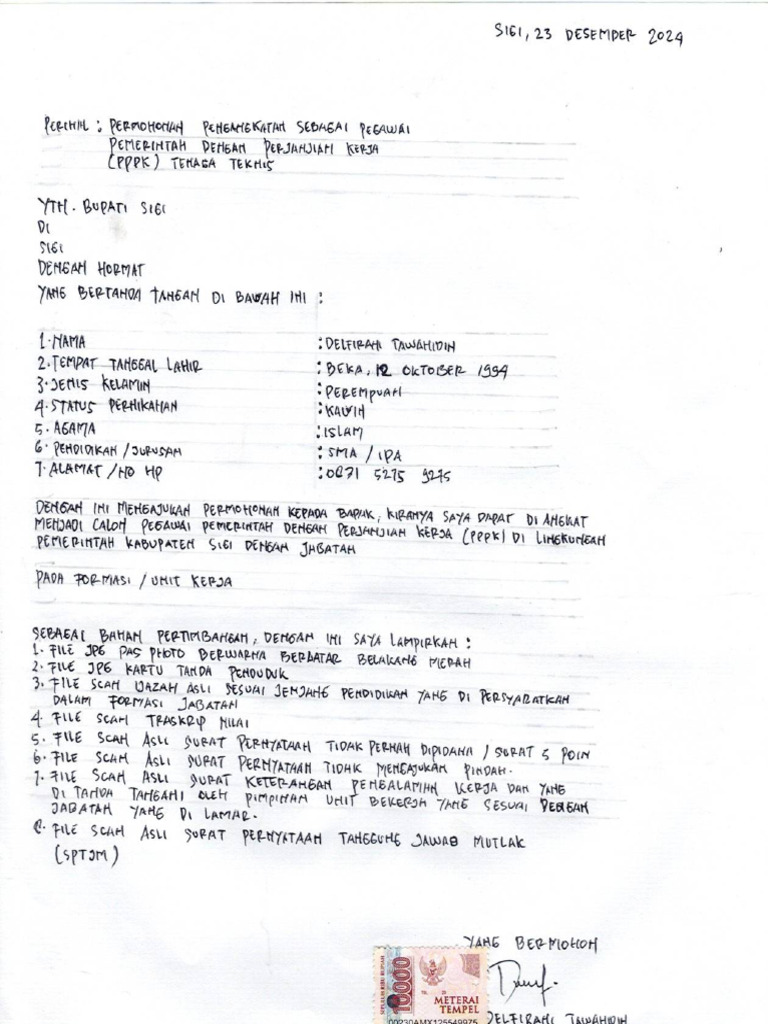 SIGI, 23 DESEMBER 2024
PERIHAL : PERMOHONAN PENGANGKATAN SEBAGAI PEGAWAI
PEMERINTAH DENGAN PERJANJIAN KERJA
(PPPK) TENAGA TEKNIS
YTH. BUPATI SIGI
DI
SIGI
DENGAN HORMAT
YANG BERTANDA TANGAN DI BAWAH INI :
1. NAMA : DELFIRAH TAWAHIDIN
2. TEMPAT TANGGAL LAHIR : BEKA, 12 OKTOBER 1994
3. JENIS KELAMIN : PEREMPUAN
4. STATUS PERNIKAHAN : KAWIN
5. AGAMA : ISLAM
6. PENDIDIKAN / JURUSAN : SMA / IPA
7. ALAMAT / NO HP : 0871 5275 9275
DENGAN INI MENGAJUKAN PERMOHONAN KEPADA BAPAK, KIRANYA SAYA DAPAT DI ANGKAT
MENJADI CALON PEGAWAI PEMERINTAH DENGAN PERJANJIAN KERJA (PPPK) DI LINGKUNGAN
PEMERINTAH KABUPATEN SIGI DENGAN JABATAN
PADA FORMASI / UNIT KERJA
SEBAGAI BAHAN PERTIMBANGAN, DENGAN INI SAYA LAMPIRKAN :
1. FILE JPG PAS PHOTO BERWARNA BERLATAR BELAKANG MERAH
2. FILE JPG KARTU TANDA PENDUDUK
3. FILE SCAN IJAZAH ASLI SESUAI JENJANG PENDIDIKAN YANG DI PERSYARATKAN
DALAM FORMASI JABATAN
4. FILE SCAN TRASKRIP NILAI
5. FILE SCAN ASLI SURAT PERNYATAAN TIDAK PERNAH DIPIDANA / SURAT 5 POIN
6. FILE SCAN ASLI SURAT PERNYATAAN TIDAK MENGAJUKAN PINDAH.
7. FILE SCAN ASLI SURAT KETERANGAN PENGALAMAN KERJA DAN YANG
DI TANDA TANGANI OLEH PIMPINAN UNIT BEKERJA YANG SESUAI DENGAN
JABATAN YANG DI LAMAR.
8. FILE SCAN ASLI SURAT PERNYATAAN TANGGUNG JAWAB MUTLAK
(SPTJM)
YANG BERMOHON
10000
METERAI
TEMPEL
00230AMX125549975
DELFIRAH TAWAHIDIN